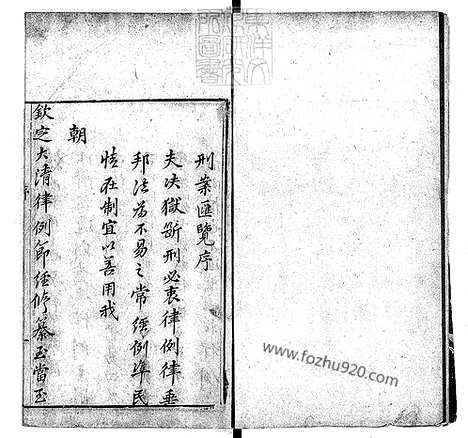 刑案匯覽序
夫决獄斷刑必衷律例律垂
邦法為不易之常經例準民
情在制宜以善用我
朝
欽定大清律例節經修纂至當至
www.fozhu920.com